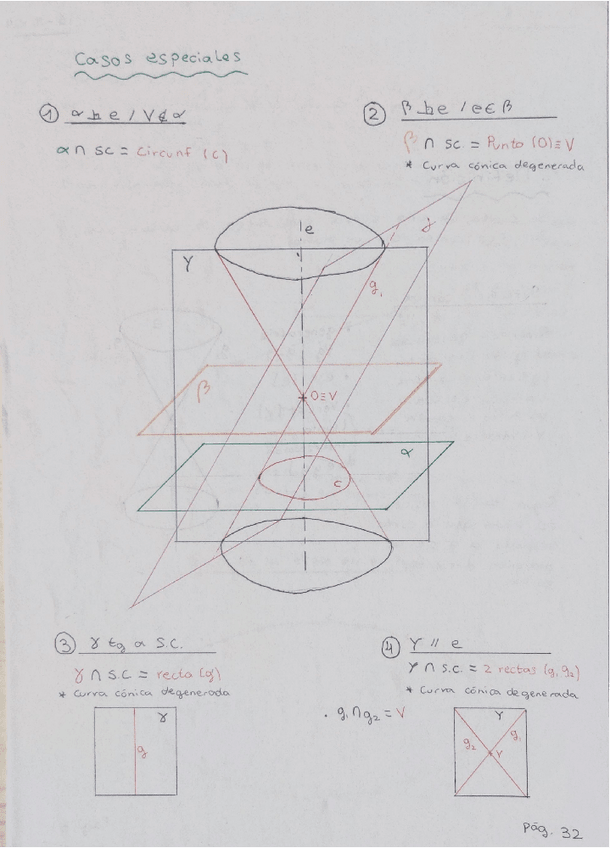 Casos especiales
① α ⊥ e / V ∉ α
α ∩ SC = Circunf (c)
② β ⊥ e / e ∈ β
β ∩ SC = Punto (O) ≡ V
* Curva cónica degenerada
e
γ
g₁
β
O≡V
α
c
③ γ tg a S.C.
γ ∩ S.C. = recta (g)
* Curva cónica degenerada
γ
g
④ γ // e
γ ∩ S.C. = 2 rectas (g₁ g₂)
* Curva cónica degenerada
. g₁ ∩ g₂ = V
γ
g₂
g₁
V
Pág. 32